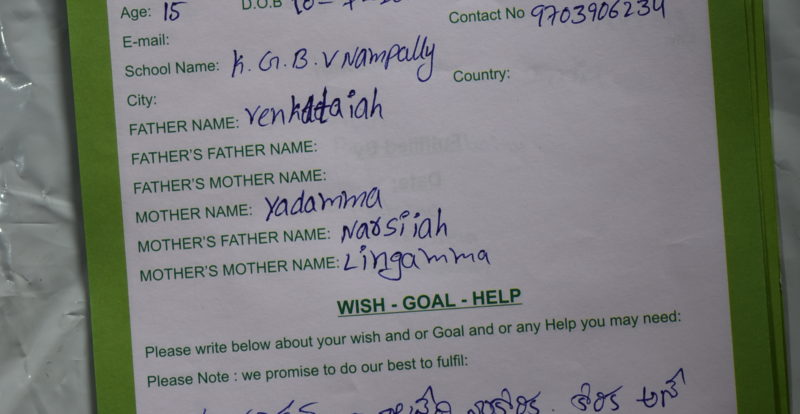 Age: 15 D.O.B
Contact No 9703906234
E-mail:
School Name: K.G.B.V Nampally
City: Country:
FATHER NAME: Venkataiah
FATHER'S FATHER NAME:
FATHER'S MOTHER NAME:
MOTHER NAME: Yadamma
MOTHER'S FATHER NAME: Narsiiah
MOTHER'S MOTHER NAME: Lingamma
WISH - GOAL - HELP
Please write below about your wish and or Goal and or any Help you may need:
Please Note : we promise to do our best to fulfil: